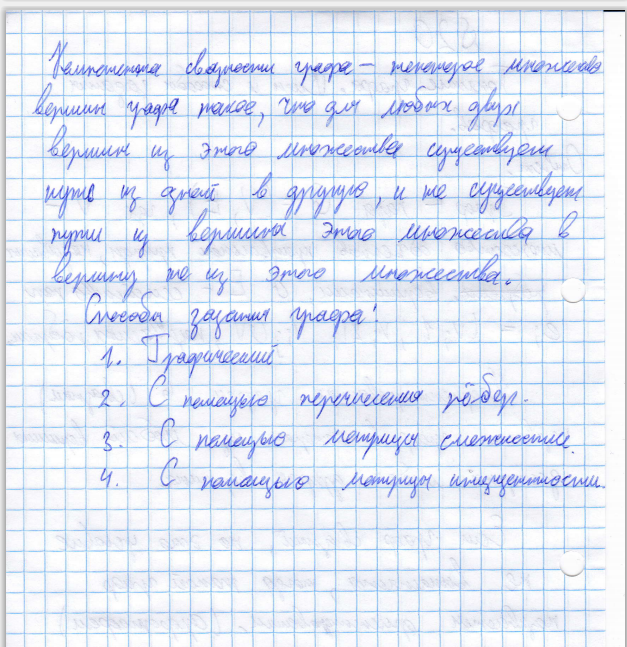 Компонента связности графа — некоторое множество
вершин графа такое, что для любых двух
вершин из этого множества существует
путь из одной в другую, и не существует
пути из вершины этого множества в
вершину не из этого множества.
Способы задания графа:
1. Графический
2. С помощью перечисления рёбер.
3. С помощью матрицы смежностии.
4. С помощью матрицы инцидентности.